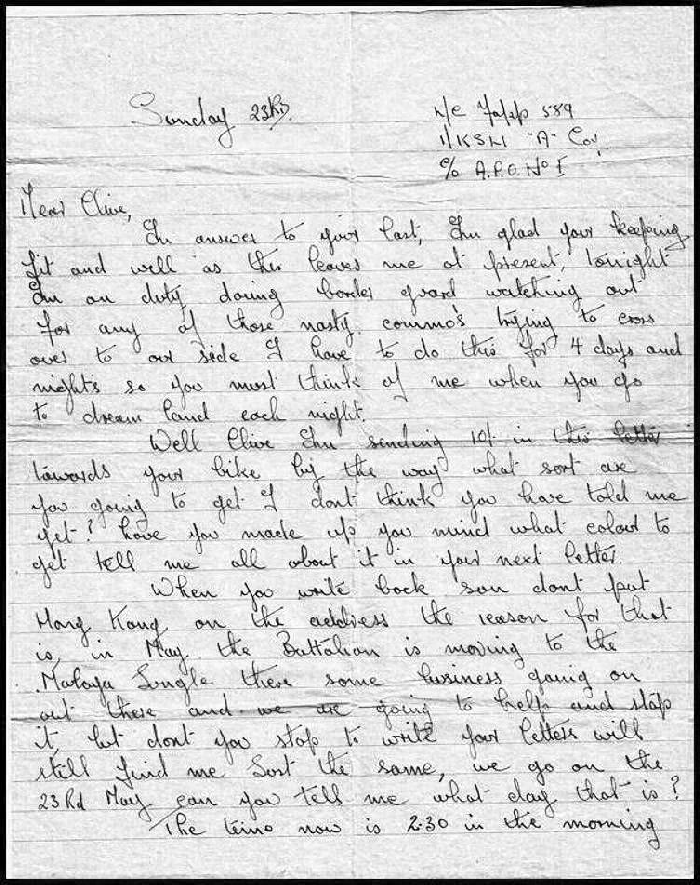 Sunday 23RD
L/C 589
1/KSLI "A" Coy,
C/o A.P.O. No 1
Dear Clive,
In answer to your last, Im glad your keeping
fit and well as this leaves me at present, tonight
Im on duty doing border guard watching out
for any of those nasty commo's trying to cross
over to our side I have to do this for 4 days and
nights so you must think of me when you go
to dream land each night.
Well Clive Im sending 10/- in this letter
towards your bike by the way what sort are
you going to get I dont think you have told me
yet? have you made up you mind what colour to
get tell me all about it in your next letter
When you write back son dont put
Hong Kong on the address the reason for that
is, in May the Battalion is moving to the
Malaya Jungle there some business going on
out there and we are going to help and stop
it, but dont you stop to write your letters will
still find me Just the same, we go on the
23Rd May can you tell me what day that is?
The time now is 2.30 in the morning